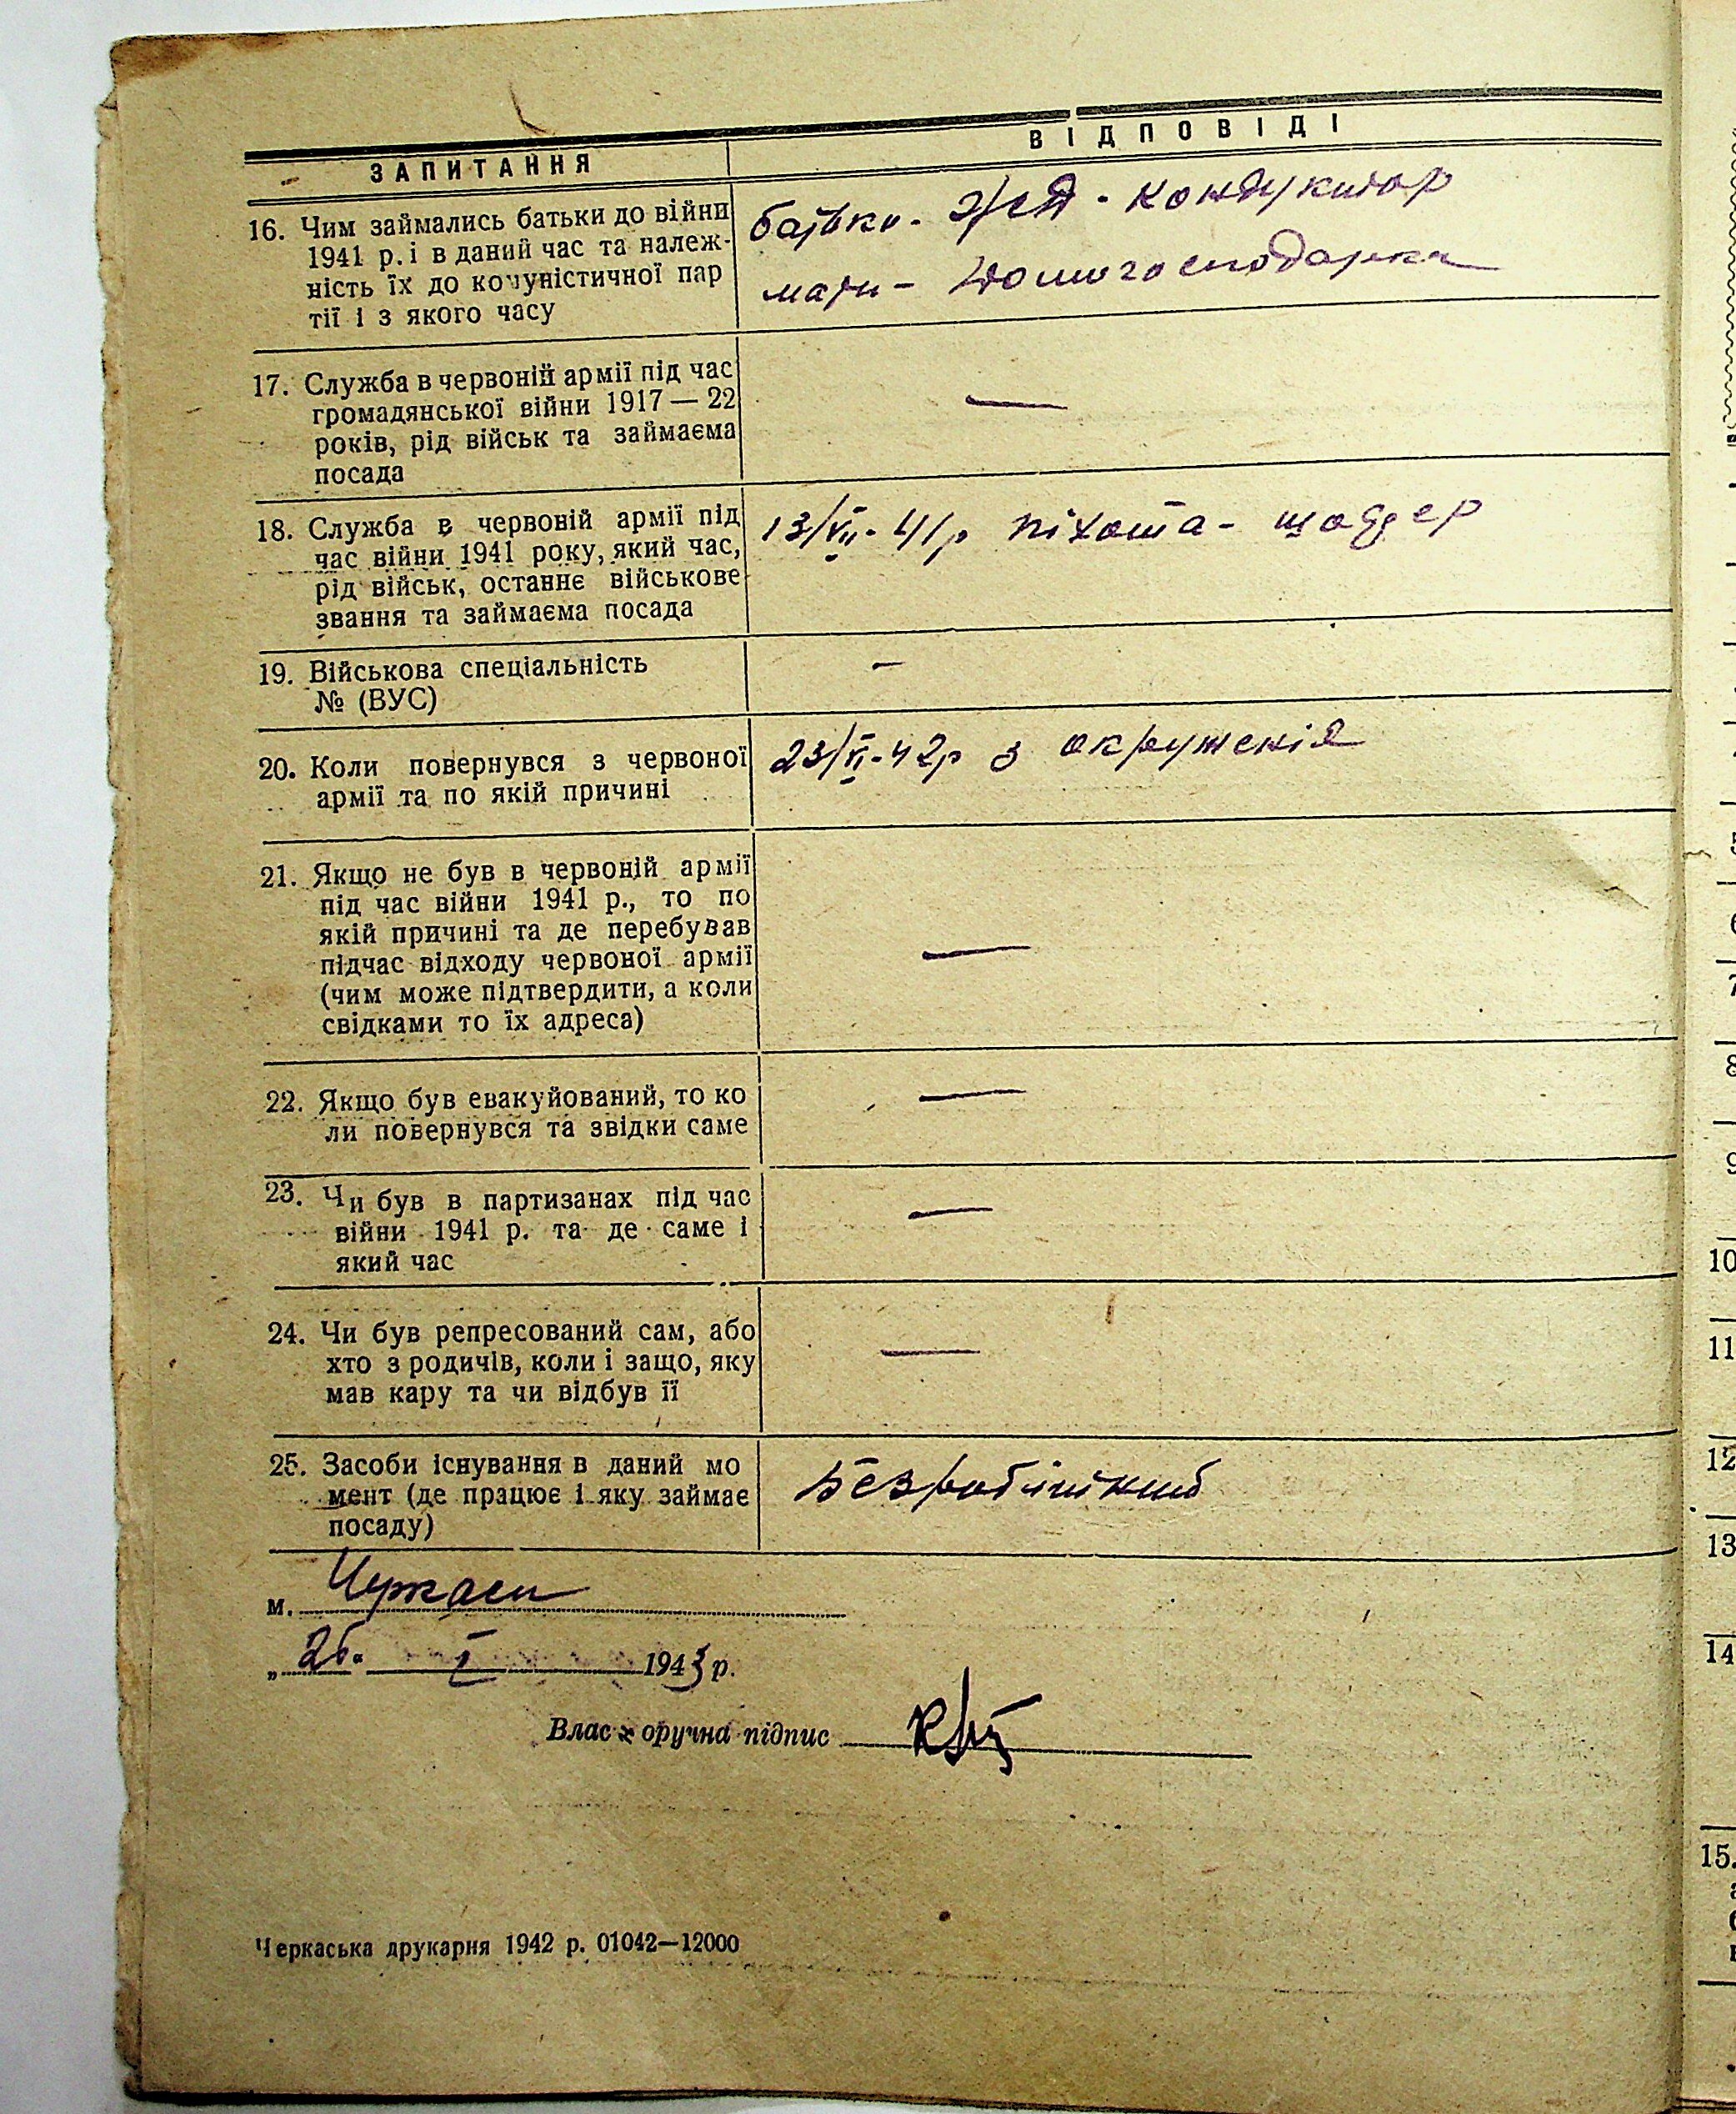 ЗАПИТАННЯ
ВІДПОВІДІ
16. Чим займались батьки до війни
1941 р. і в даний час та належ-
ність їх до комуністичної пар
тії і з якого часу
батько - ЖД - кондуктор
мати - домогосподарка
17. Служба в червоній армії під час
громадянської війни 1917 — 22
років, рід військ та займаєма
посада
—
18. Служба в червоній армії під
час війни 1941 року, який час,
рід військ, останнє військове
звання та займаєма посада
13/VII-41р піхота -
19. Військова спеціальність
№ (ВУС)
—
20. Коли повернувся з червоної
армії та по якій причині
23/VI-42р з окруженія
21. Якщо не був в червоній армії
під час війни 1941 р., то по
якій причині та де перебував
підчас відходу червоної армії
(чим може підтвердити, а коли
свідками то їх адреса)
—
22. Якщо був евакуйований, то ко
ли повернувся та звідки саме
—
23. Чи був в партизанах під час
війни 1941 р. та де саме і
який час
—
24. Чи був репресований сам, або
хто з родичів, коли і защо, яку
мав кару та чи відбув її
—
25. Засоби існування в даний мо
мент (де працює і яку займає
посаду)
Безробітний
м. Черкаси
„ " I 1943 р.
Власноручна підпис
Черкаська друкарня 1942 р. 01042—12000
7
8
9
10
11
12
13
14
15.